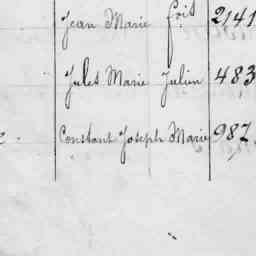 Jean Marie fois 2141
Jules Marie Julien 483
e. Constant Joseph Marie 987